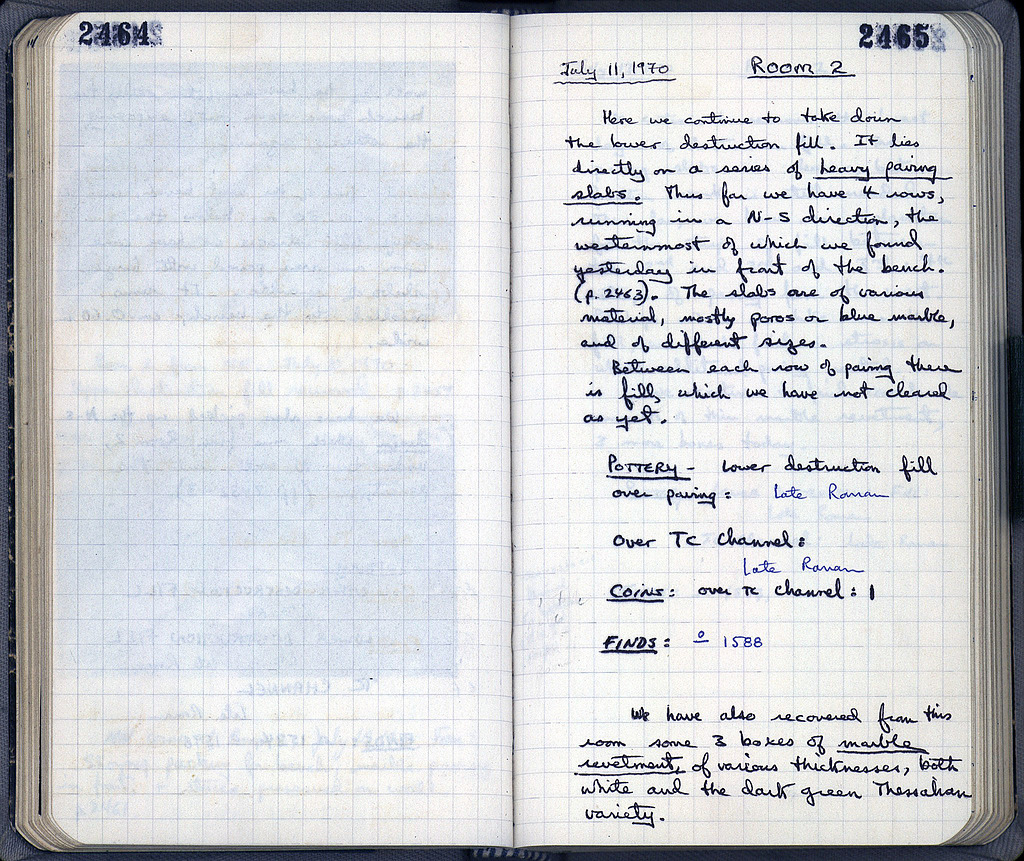 2464
2465
July 11, 1970 ROOM 2
Here we continue to take down
the lower destruction fill. It lies
directly on a series of heavy paving
slabs. Thus far we have 4 rows,
running in a N-S direction, the
westernmost of which we found
yesterday in front of the bench.
(p. 2463). The slabs are of various
material, mostly poros or blue marble,
and of different sizes.
Between each row of paving there
is fill, which we have not cleared
as yet.
POTTERY - Lower destruction fill
over paving: Late Roman
Over TC Channel:
Late Roman
COINS: over TC channel: 1
FINDS: 1588
We have also recovered from this
room some 3 boxes of marble
revetment, of various thicknesses, both
white and the dark green Thessalian
variety.